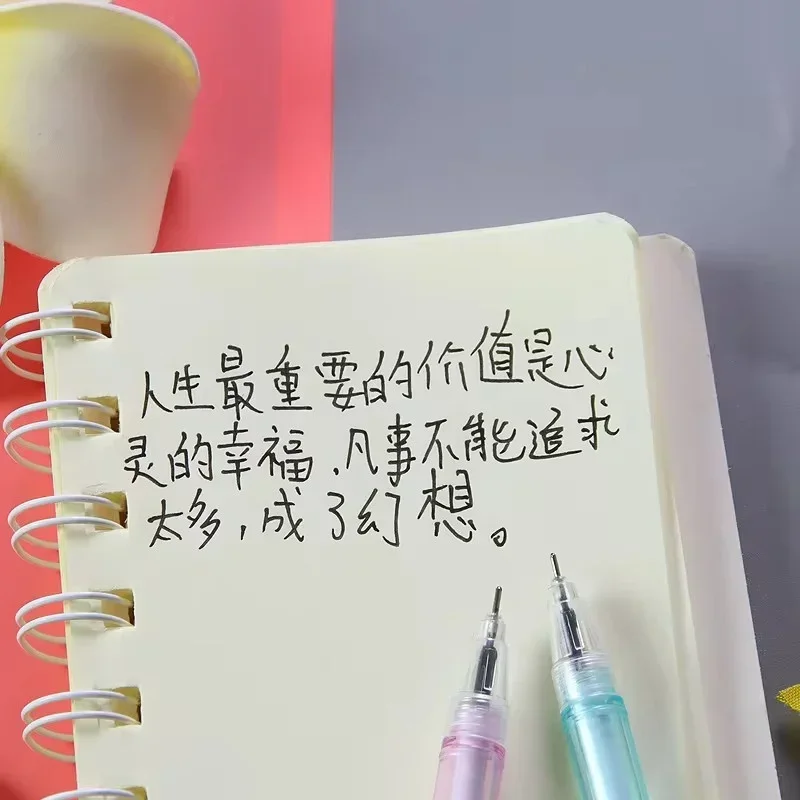 人生最重要的价值是心
灵的幸福,凡事不能追求
太多,成了幻想。